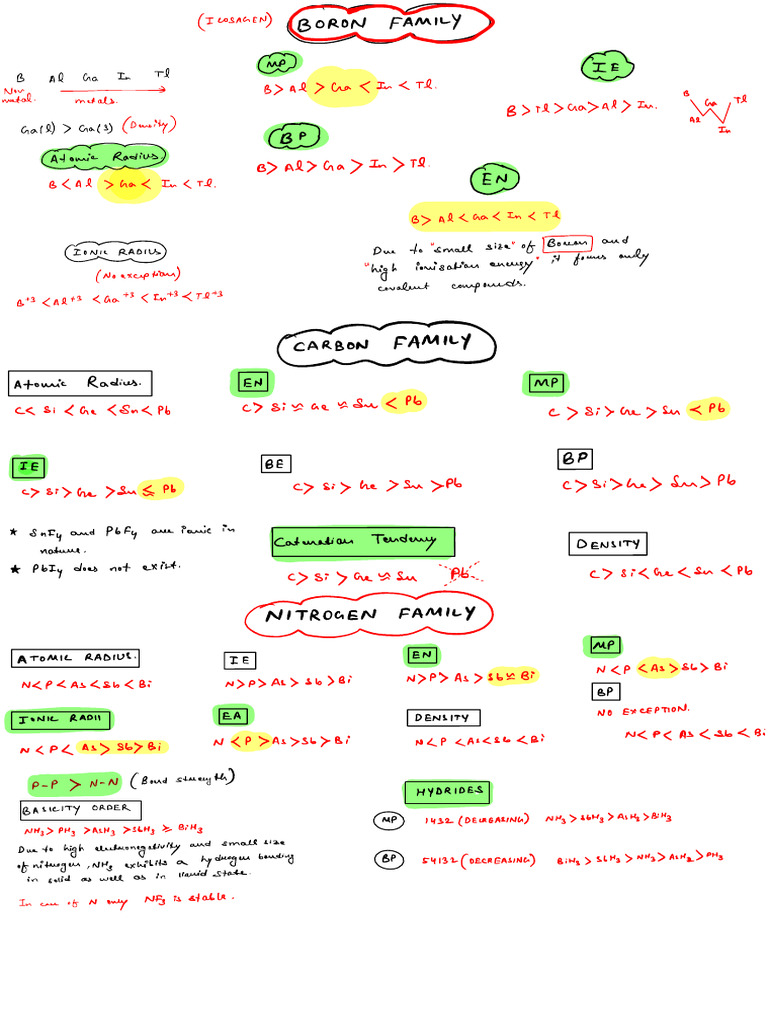 (ICOSAGEN) BORON FAMILY
B Al Ga In Tl
Non metal. metals.
Ga(l) > Ga(s) (Density)
Atomic Radius.
B < Al > Ga < In < Tl.
MP
B > Al > Ga < In < Tl.
BP
B > Al > Ga > In > Tl.
IE
B > Tl > Ga > Al > In.
B Ga Tl
Al In
EN
B > Al < Ga < In < Tl
Due to "small size" of Boron and
"high ionisation energy" it forms only
covalent compounds.
IONIC RADIUS
(No exceptions)
B+3 < Al+3 < Ga+3 < In+3 < Tl+3
CARBON FAMILY
Atomic Radius.
C < Si < Ge < Sn < Pb
EN
C > Si ≈ Ge ≈ Sn < Pb
MP
C > Si > Ge > Sn < Pb
IE
C > Si > Ge > Sn ≤ Pb
BE
C > Si > Ge > Sn > Pb
BP
C > Si > Ge > Sn > Pb
* SnF4 and PbF4 are ionic in
nature.
* PbI4 does not exist.
Catenation Tendency
C > Si > Ge ≈ Sn Pb
DENSITY
C > Si < Ge < Sn < Pb
NITROGEN FAMILY
ATOMIC RADIUS.
N < P < As < Sb < Bi
IE
N > P > As > Sb > Bi
EN
N > P > As > Sb ≈ Bi
MP
N < P < As > Sb > Bi
BP
NO EXCEPTION.
N < P < As < Sb < Bi
IONIC RADII
N < P < As > Sb > Bi
EA
N < P > As > Sb > Bi
DENSITY
N < P < As < Sb < Bi
P-P > N-N (Bond strength)
BASICITY ORDER
NH3 > PH3 > AsH3 > SbH3 ≥ BiH3
Due to high electronegativity and small size
of nitrogen, NH3 exhibits a hydrogen bonding
in solid as well as in liquid state.
In case of N only NF3 is stable.
HYDRIDES
MP 1432 (DECREASING) NH3 > SbH3 > AsH3 > BiH3
BP 54132 (DECREASING) BiH3 > SbH3 > NH3 > AsH3 > PH3